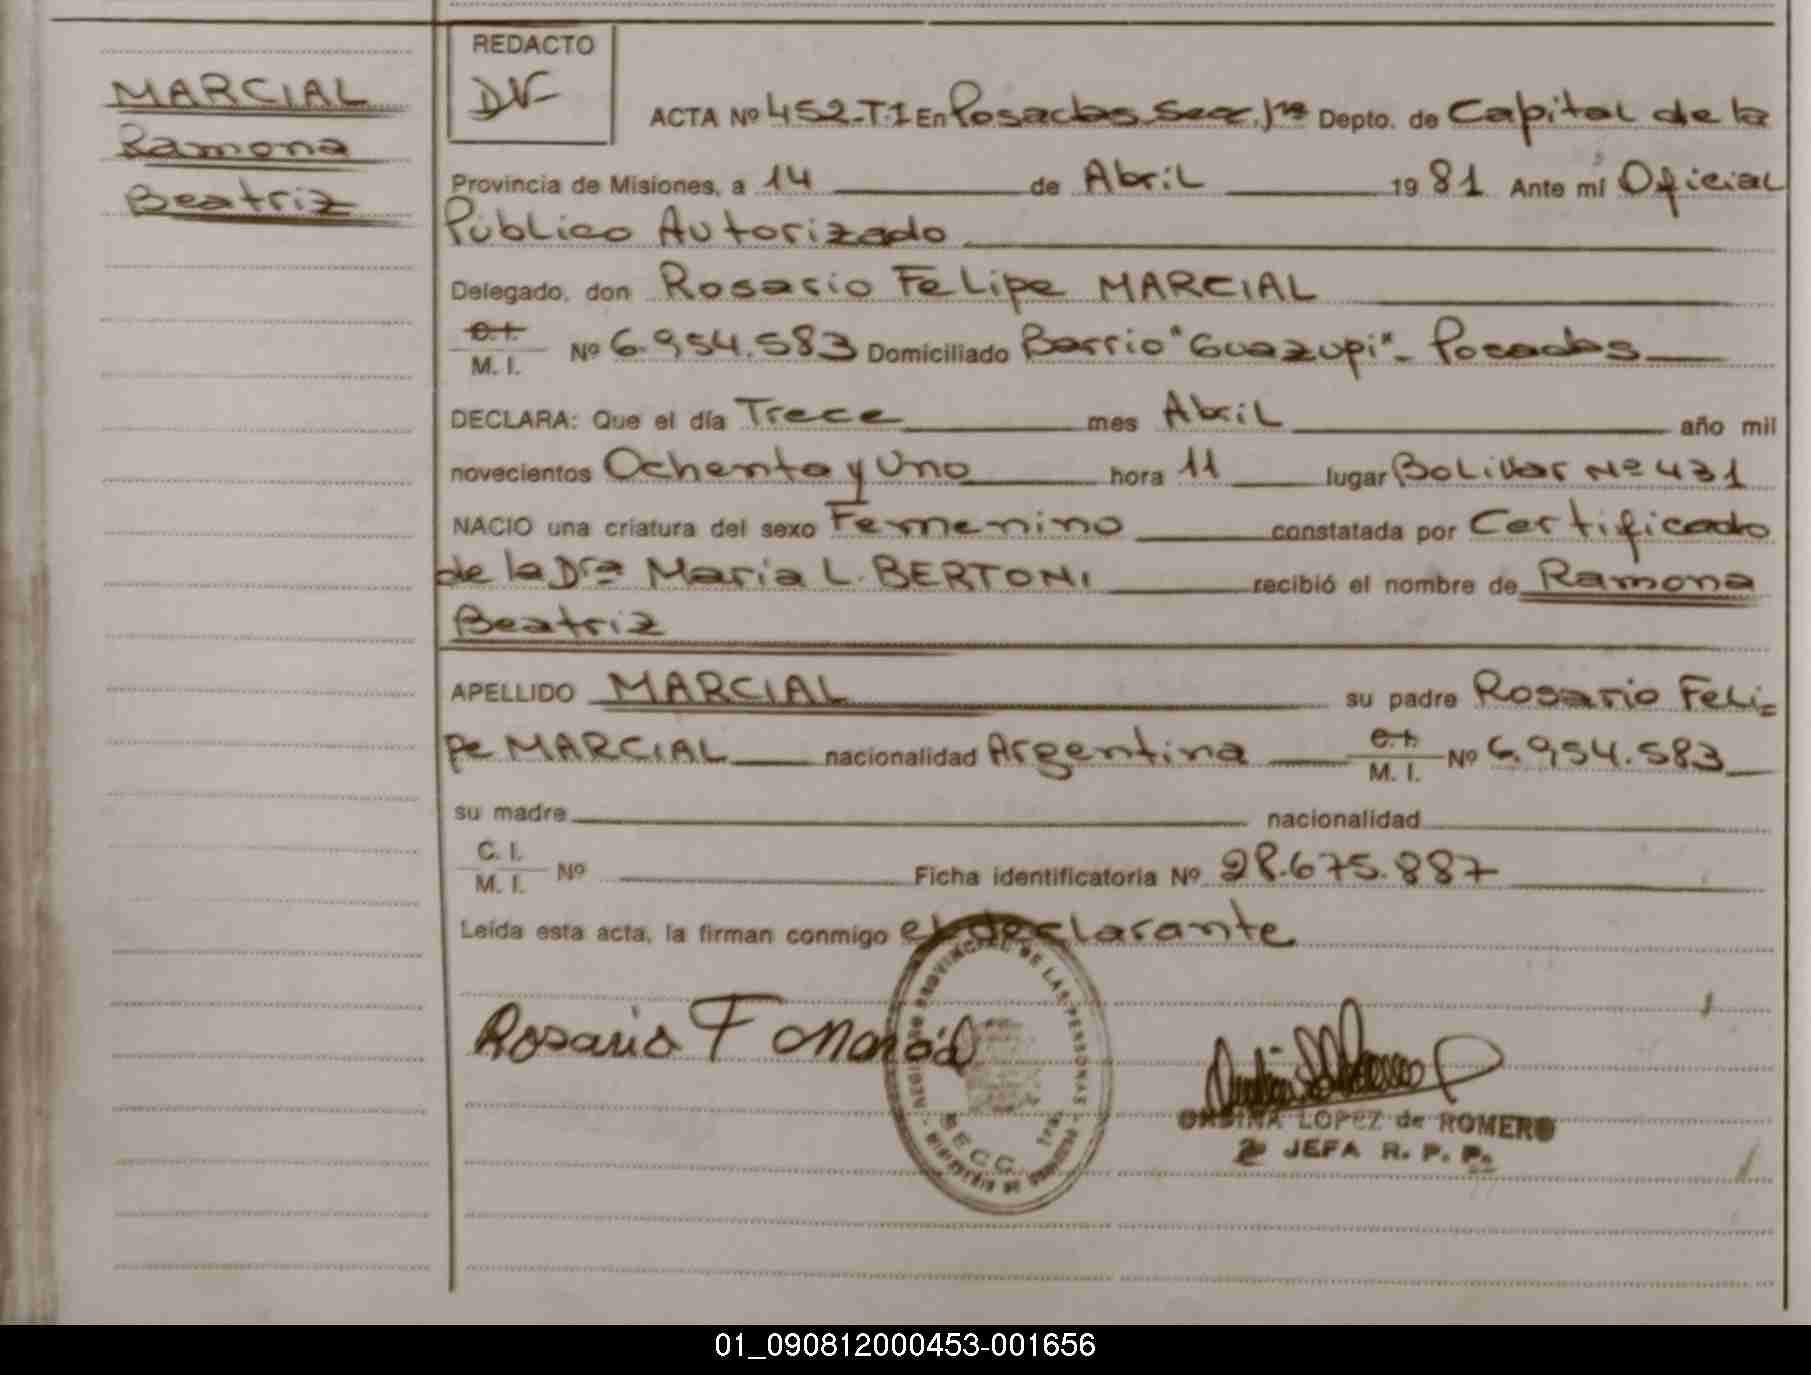 MARCIAL
Ramona
Beatriz
REDACTO
ACTA Nº 452-T.1 En Posadas Secc. 1ra Depto. de Capital de la
Provincia de Misiones, a 14 de Abril 1981 Ante mí Oficial
Público Autorizado
Delegado, don Rosario Felipe MARCIAL
C. I.
M. I. Nº 6.954.583 Domiciliado Barrio "Guazupi" - Posadas
DECLARA: Que el día Trece mes Abril año mil
novecientos Ochenta y Uno hora 11 lugar Bolivar Nº 431
NACIO una criatura del sexo Femenino constatada por Certificado
de la Dra Maria L. BERTONI recibió el nombre de Ramona
Beatriz
APELLIDO MARCIAL su padre Rosario Feli=
pe MARCIAL nacionalidad Argentina C. I. M. I. Nº 6.954.583
su madre nacionalidad
C. I.
M. I. Nº Ficha identificatoria Nº 28.675.887
Leída esta acta, la firman conmigo el declarante
REGISTRO PROVINCIAL DE LAS PERSONAS - MINISTERIO DE GOBIERNO -
SECC. 1ra.
Rosario F Marcial
LOPEZ de ROMERO
JEFA R. P. P.
01_090812000453-001656